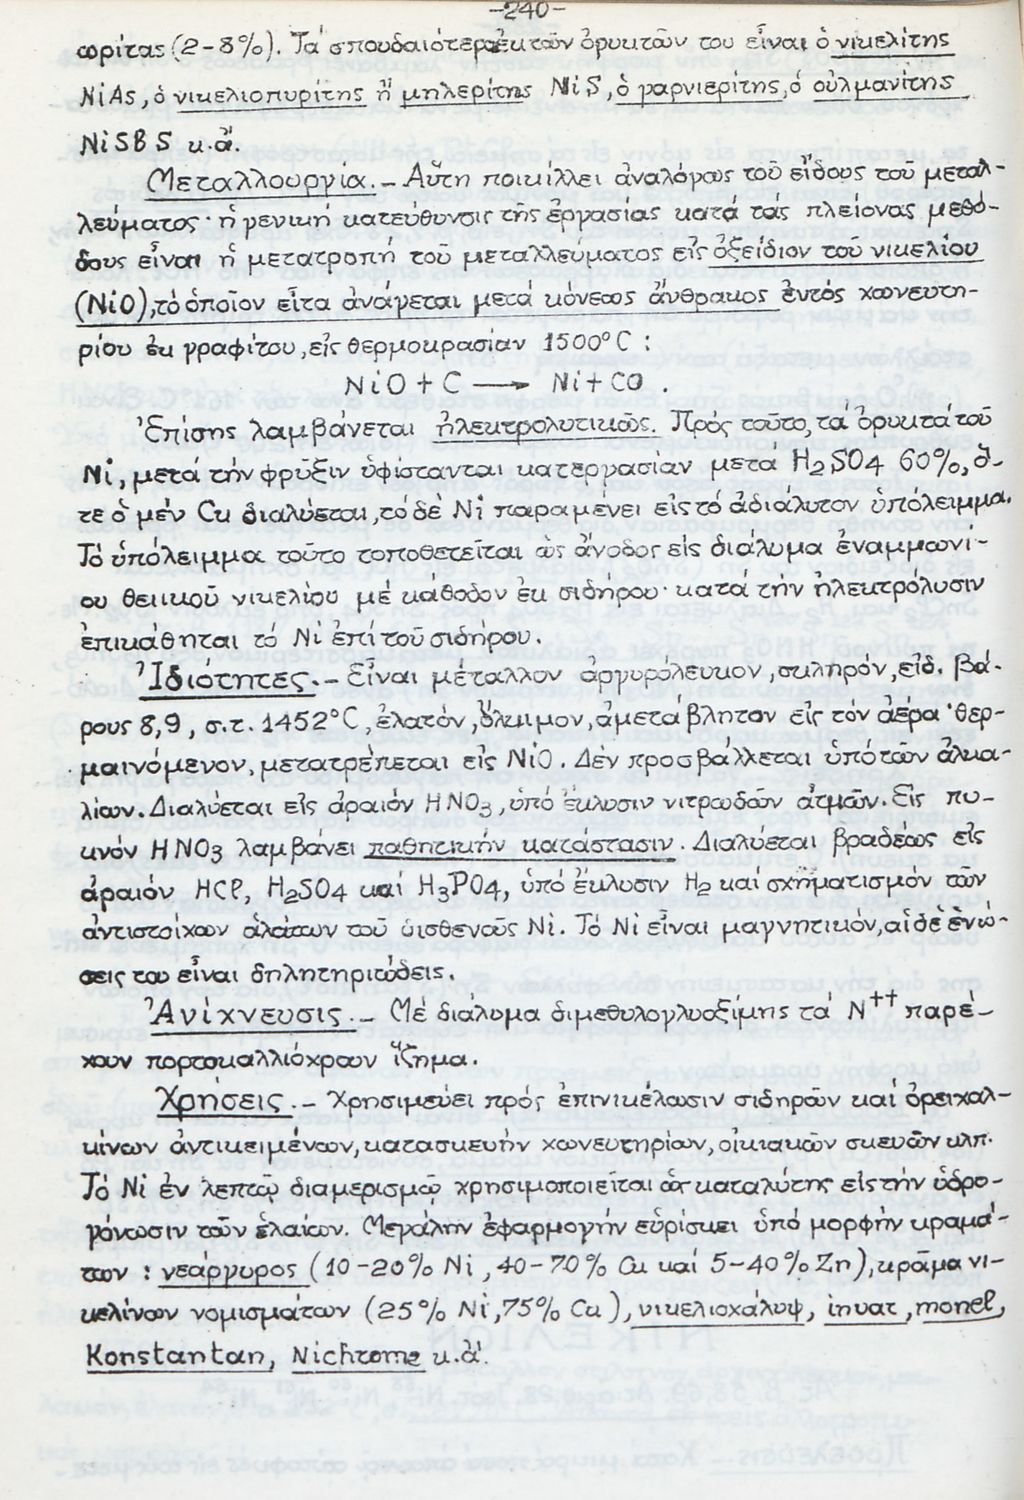 -240-
ωρίτας (2-8%). Τά σπουδαιότερα ἐκ τῶν ὀρυκτῶν του εἶναι ὁ νικελίτης
NiAs, ὁ νικελιοπυρίτης ἤ μιλερίτης NiS, ὁ γαρνιερίτης, ὁ οὐλμανίτης
NiSBS κ.ἄ.
Μεταλλουργία.- Αὕτη ποικίλλει ἀναλόγως τοῦ εἴδους τοῦ μεταλ-
λεύματος· ἡ γενική κατεύθυνσις τῆς ἐργασίας κατά τάς πλείονας μεθό-
δους εἶναι ἡ μετατροπή τοῦ μεταλλεύματος εἰς ὀξείδιον τοῦ νικελίου
(NiO), τό ὁποῖον εἶτα ἀνάγεται μετά κόνεως ἄνθρακος ἐντός χωνευτη-
ρίου ἐκ γραφίτου, εἰς θερμοκρασίαν 1500°C :
NiO + C → Ni + CO .
Ἐπίσης λαμβάνεται ἠλεκτρολυτικῶς. Πρός τοῦτο, τά ὀρυκτά τοῦ
Ni, μετά τήν φρῦξιν ὑφίστανται κατεργασίαν μετά H2SO4 60%, ὅ-
τε ὁ μέν Cu διαλύεται, τό δέ Ni παραμένει εἰς τό ἀδιάλυτον ὑπόλειμμα.
Τό ὑπόλειμμα τοῦτο τοποθετεῖται ὡς ἄνοδος εἰς διάλυμα ἐναμμωνί-
ου θειικοῦ νικελίου μέ κάθοδον ἐκ σιδήρου· κατά τήν ἠλεκτρόλυσιν
ἐπικάθηται τό Ni ἐπί τοῦ σιδήρου.
Ἰδιότητες.- Εἶναι μέταλλον ἀργυρόλευκον, σκληρόν, εἰδ. βά-
ρους 8,9, σ.τ. 1452°C ἐλατόν, ὅλκιμον, ἀμετάβλητον εἰς τόν ἀέρα· θερ-
μαινόμενον, μετατρέπεται εἰς NiO. Δέν προσβάλλεται ὑπό τῶν ἀλκα-
λίων. Διαλύεται εἰς ἀραιόν HNO3, ὑπό ἔκλυσιν νιτρωδῶν ἀτμῶν. Εἰς πυ-
κνόν HNO3 λαμβάνει παθητικήν κατάστασιν. Διαλύεται βραδέως εἰς
ἀραιόν HCl, H2SO4 καί H3PO4, ὑπό ἔκλυσιν H2 καί σχηματισμόν τῶν
ἀντιστοίχων ἁλάτων τοῦ δισθενοῦς Ni. Τό Ni εἶναι μαγνητικόν, αἱ δέ ἐνώ-
σεις του εἶναι δηλητηριώδεις.
Ἀνίχνευσις.- Μέ διάλυμα διμεθυλογλυοξίμης τά N++ παρέ-
χουν πορτοκαλλιόχρουν ἵζημα.
Χρήσεις.- Χρησιμεύει πρός ἐπινικέλωσιν σιδηρῶν καί ὀρειχαλ-
κίνων ἀντικειμένων, κατασκευήν χωνευτηρίων, οἰκιακῶν σκευῶν κλπ.
Τό Ni ἐν λεπτῷ διαμερισμῷ χρησιμοποιεῖται ὡς καταλύτης εἰς τήν ὑδρο-
γόνωσιν τῶν ἐλαίων. Μεγάλην ἐφαρμογήν εὑρίσκει ὑπό μορφήν κραμά-
των : νεάργυρος (10-20% Ni, 40-70% Cu καί 5-40% Zn), κρᾶμα νι-
κελίνων νομισμάτων (25% Ni, 75% Cu), νικελιοχάλυψ, ἰνvατ, monel,
Konstantan, Nichrome κ.ἄ.